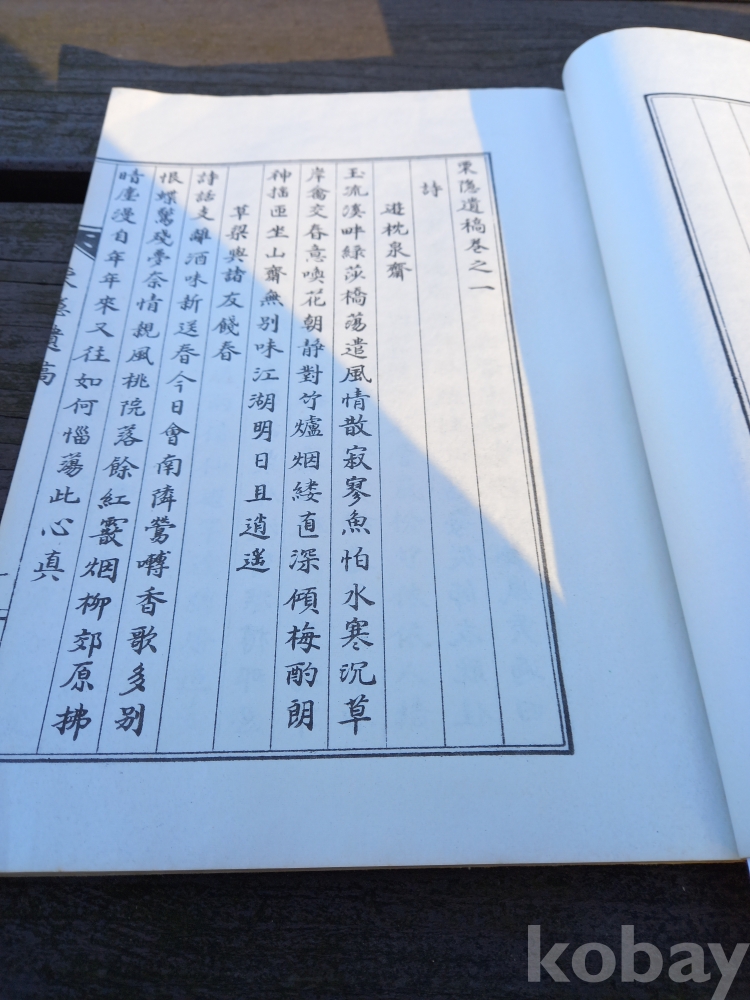 栗隐遺稿卷之一
詩
遊枕泉齋
玉流溪畔綠莎橋蕩遣風情散寂寥魚怕水寒沉草
岸禽交春意喚花朝靜對竹爐烟縷直深傾梅酌朗
神搖匝坐山齋無別味江湖明日且逍遥
草梨與諸友餞春
詩話支離酒味新送春今日會南隣鶯囀香歌多别
恨蝶驚殘夢奈情親風桃院落餘紅霰烟柳郊原拂
暗塵漫自年年來又往如何惱蕩此心真
隱遺稿
kobay